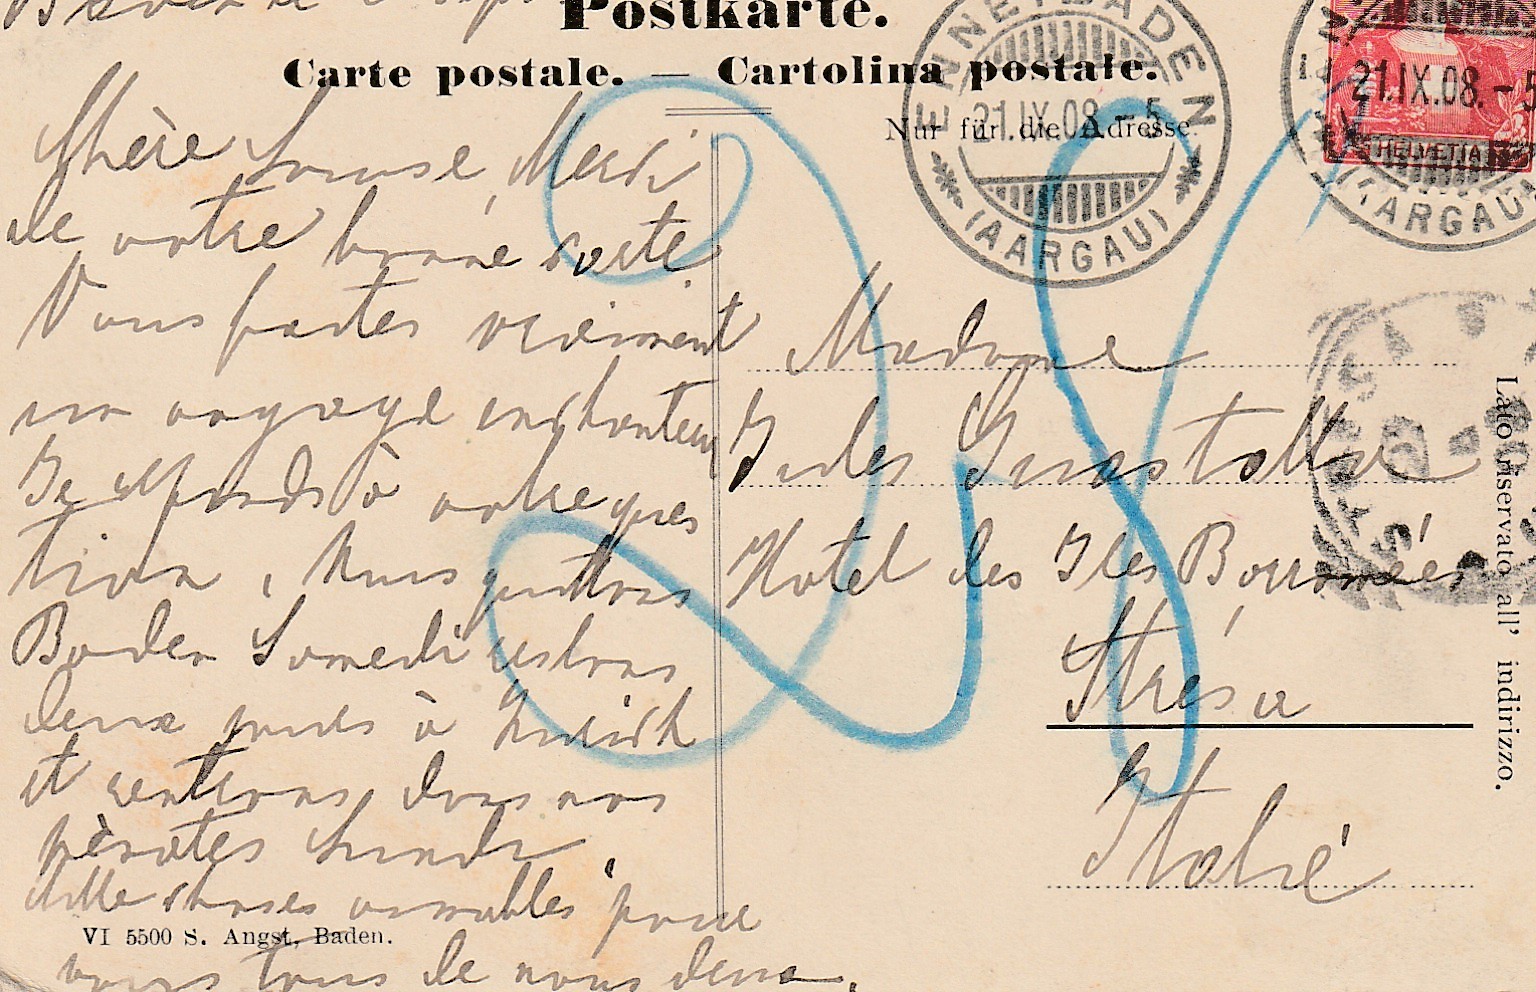 Postkarte.
Carte postale. — Cartolina postale.
Nur für die Adresse
ENNETBADEN
21.IX.08.-5
(AARGAU)
21.IX.08.-5
HELVETIA
(AARGAU)
Chère Louise, Merci
de votre bonne carte
Vous faites vraiment
un voyage enchanteur
Je réponds à votre ques
tion, Nous quittons
Baden Samedi restons
deux jours à Zurich
et rentrons dans nos
pénates Lundi.
Mille choses aimables pour
vous tous de nous deux.
VI 5500 S. Angst, Baden.
Madame
Jules Guastalla
Hotel des Iles Borromées
Strésa
Italie
Lato riservato all' indirizzo.